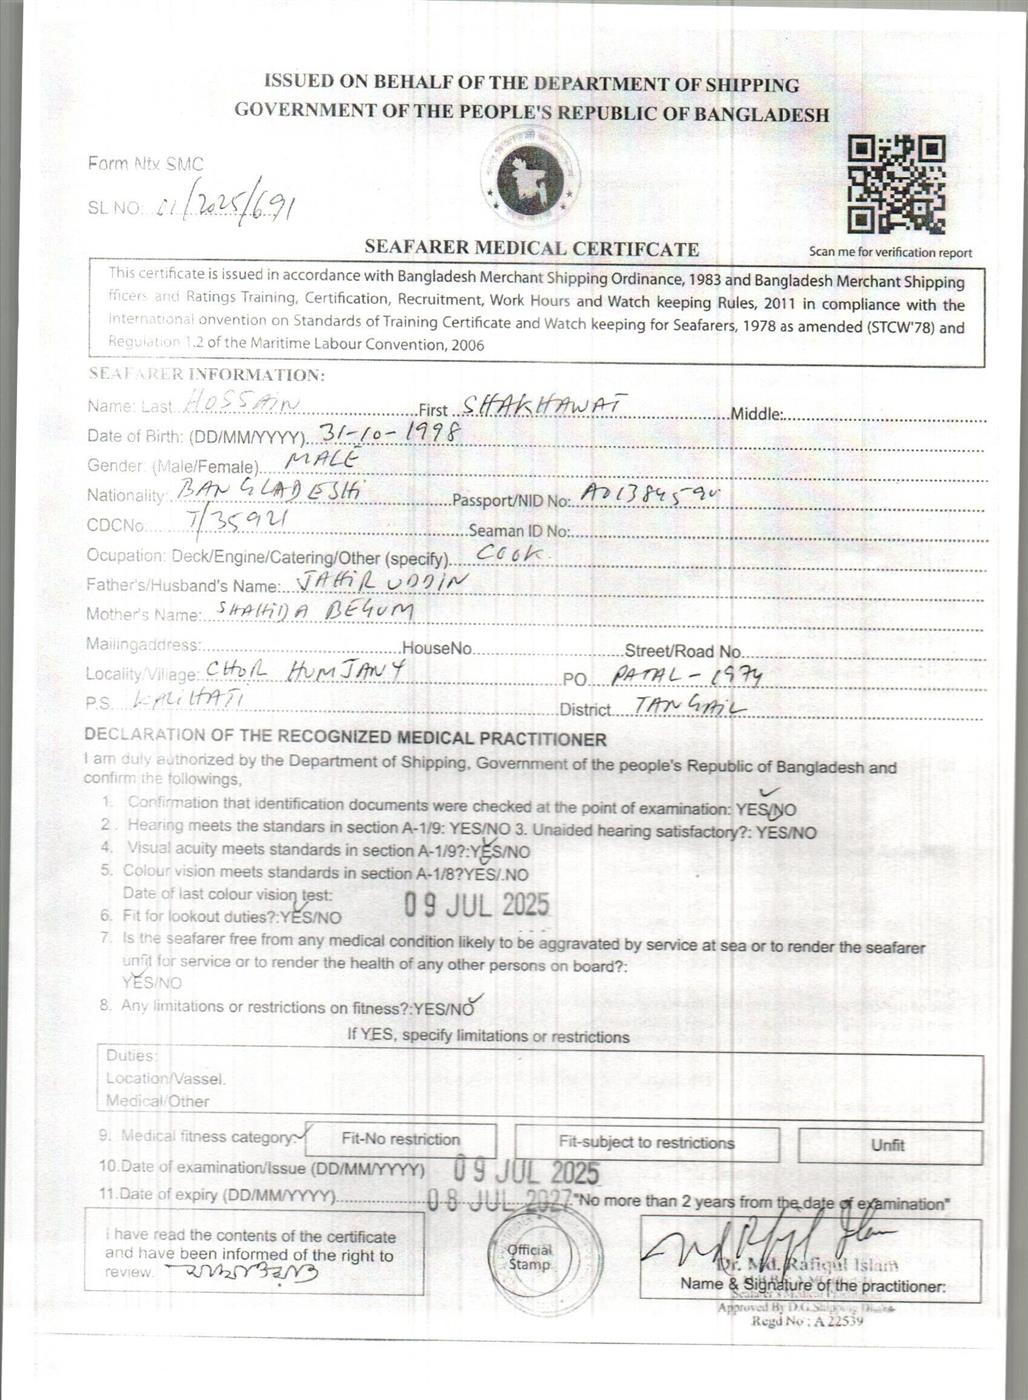 ISSUED ON BEHALF OF THE DEPARTMENT OF SHIPPING
GOVERNMENT OF THE PEOPLE'S REPUBLIC OF BANGLADESH
Form Ntx SMC
SL NO: 01/2025/691
SEAFARER MEDICAL CERTIFCATE
Scan me for verification report
This certificate is issued in accordance with Bangladesh Merchant Shipping Ordinance, 1983 and Bangladesh Merchant Shipping
fficers and Ratings Training, Certification, Recruitment, Work Hours and Watch keeping Rules, 2011 in compliance with the
International onvention on Standards of Training Certificate and Watch keeping for Seafarers, 1978 as amended (STCW'78) and
Regulation 1.2 of the Maritime Labour Convention, 2006
SEAFARER INFORMATION:
Name: Last HOSSAIN First SHAKHAWAT Middle:
Date of Birth: (DD/MM/YYYY) 31-10-1998
Gender: (Male/Female) MALE
Nationality: BANGLADESHI Passport/NID No: A01384590
CDCNo T/35921 Seaman ID No:
Ocupation: Deck/Engine/Catering/Other (specify) COOK
Father's/Husband's Name: JAHIR UDDIN
Mother's Name: SHAHIDA BEGUM
Mailingaddress: HouseNo Street/Road No
Locality/Village: CHOR HUMJANY PO PATAL-1974
P.S. KALIHATI District TANGAIL
DECLARATION OF THE RECOGNIZED MEDICAL PRACTITIONER
I am duly authorized by the Department of Shipping, Government of the people's Republic of Bangladesh and
confirm the followings,
1. Confirmation that identification documents were checked at the point of examination: YES/NO
2. Hearing meets the standars in section A-1/9: YES/NO 3. Unaided hearing satisfactory?: YES/NO
4. Visual acuity meets standards in section A-1/9?:YES/NO
5. Colour vision meets standards in section A-1/8?YES/.NO
Date of last colour vision test: 09 JUL 2025
6. Fit for lookout duties?:YES/NO
7. Is the seafarer free from any medical condition likely to be aggravated by service at sea or to render the seafarer
unfit for service or to render the health of any other persons on board?:
YES/NO
8. Any limitations or restrictions on fitness?:YES/NO
If YES, specify limitations or restrictions
Duties:
Location/Vassel.
Medical/Other
9. Medical fitness category: Fit-No restriction Fit-subject to restrictions Unfit
10.Date of examination/Issue (DD/MM/YYYY) 09 JUL 2025
11.Date of expiry (DD/MM/YYYY) 08 JUL 2027 "No more than 2 years from the date of examination"
I have read the contents of the certificate
and have been informed of the right to
review.
Official
Stamp
Dr. Md. Rafiqul Islam
Name & Signature of the practitioner:
Approved By D.G. Shipping Dhaka
Regd No : A 22539